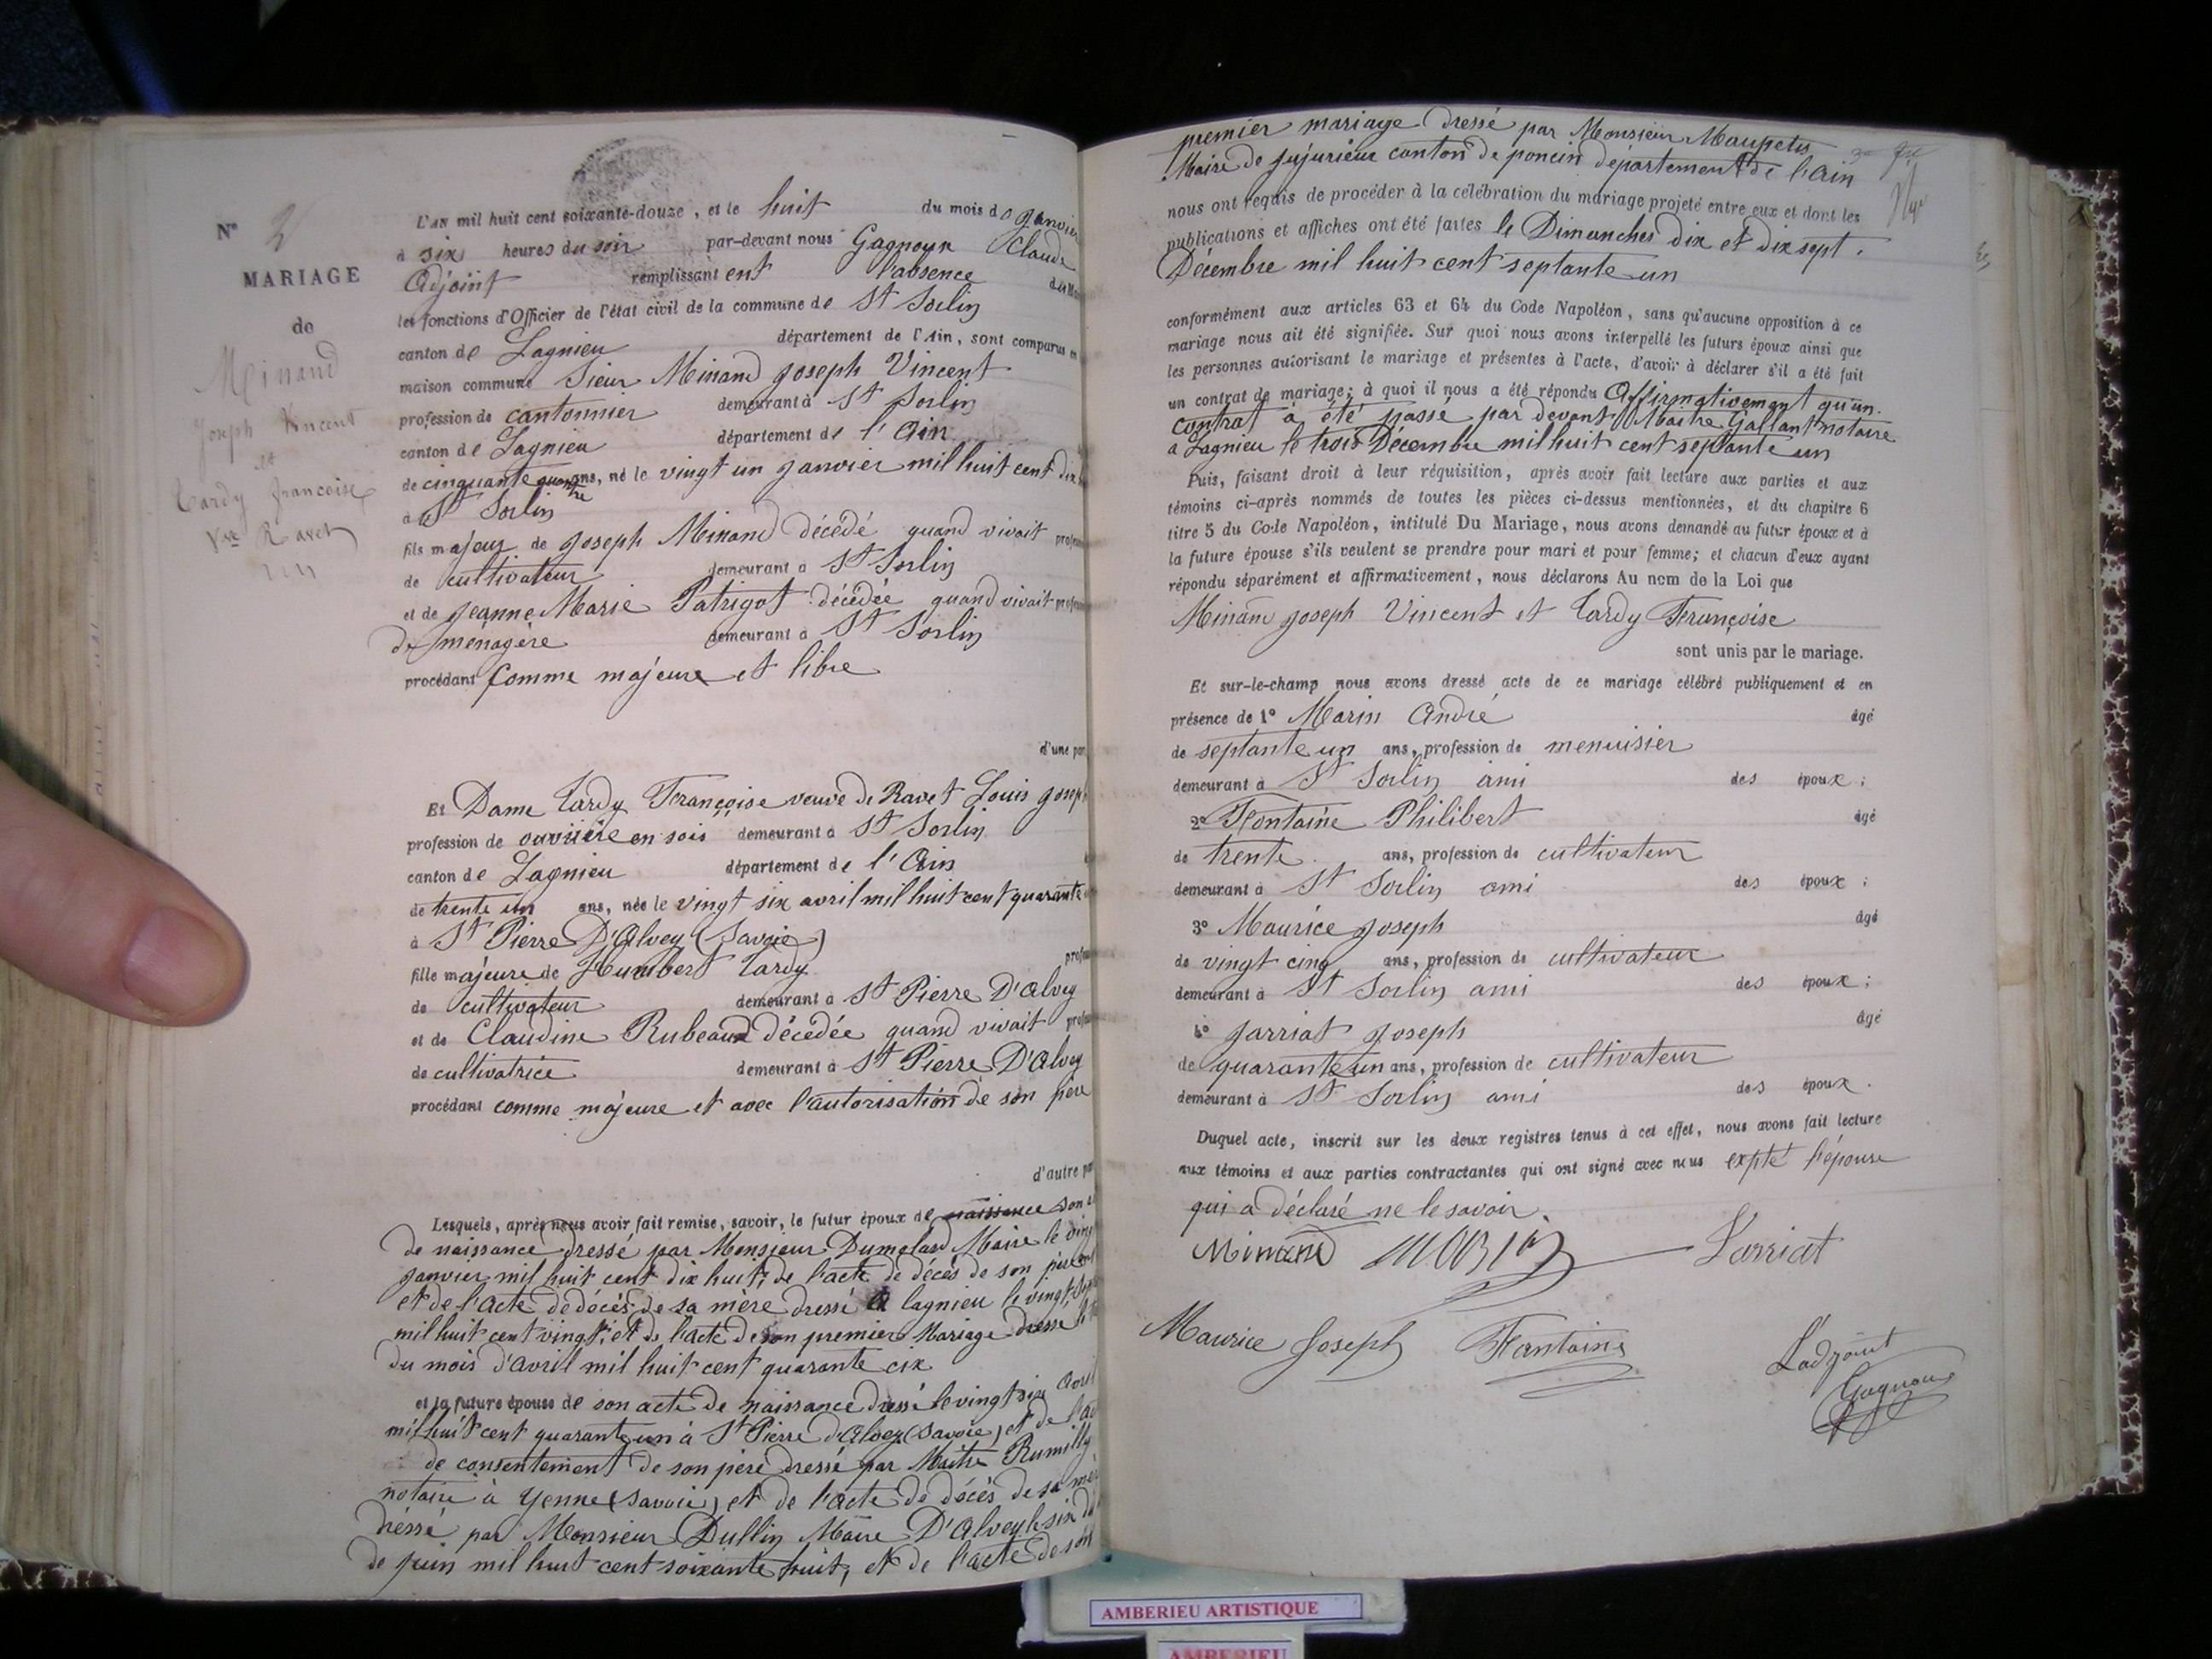 N° 2
MARIAGE
de
Minand
Joseph Vincent
et
Tardy francoise
Vve Ravet
L'AN mil huit cent soixante-douze, et le huit du mois de Janvier
à six heures du soir par-devant nous Gagneux Claude
Adjoint remplissant ent l'absence du
les fonctions d'Officier de l'état civil de la commune de St Sorlin
canton de Lagnieu département de l'Ain, sont comparus en
maison commune Sieur Minand Joseph Vincent
profession de cantonnier demeurant à St Sorlin
canton de Lagnieu département de l'Ain
de cinquante quatre ans, né le vingt un Janvier mil huit cent dix
à St Sorlin
fils majeur de Joseph Minand décédé quand vivait
de cultivateur demeurant à St Sorlin
et de Jeanne Marie Patrigot décédée quand vivait
de ménagère demeurant à St Sorlin
procédant comme majeure et libre
d'une par
Et Dame Tardy Françoise veuve de Ravet Louis Josep
profession de ouvrière en soie demeurant à St Sorlin
canton de Lagnieu département de l'Ain
de trente un ans, née le vingt six avril mil huit cent quarante
à St Pierre D'Alvey (Savoie)
fille majeure de Humbert Tardy
de cultivateur demeurant à St Pierre D'Alvey
et de Claudine Rubeaud décédée quand vivait
de cultivatrice demeurant à St Pierre D'Alvey
procédant comme majeure et avec l'autorisation de son père
d'autre par
Lesquels, après nous avoir fait remise, savoir, le futur époux de naissance son
de naissance dressé par Monsieur Dumolard Maire le
Janvier mil huit cent dix huit, de l'acte de décès de son père
et de l'acte de décès de sa mère dressé à lagnieu le vingt
mil huit cent vingt, et de l'acte de son premier Mariage dressé le
du mois d'avril mil huit cent quarante cix
et la future épouse de son acte de naissance dressé le vingt six avril
mil huit cent quarante un à St Pierre d'Alvey (Savoie) et de l'ac
de consentement de son père dressé par Maitre Rumilly
notaire à Yenne (Savoie) et de l'acte de décès de sa mèr
dressé par Monsieur Dullin Maire D'Alvey le six
de Juin mil huit cent soixante huit, et de l'acte de son
premier mariage dressé par Monsieur Maupetis
Maire de Jujurieux canton de poncin département de l'Ain
nous ont requis de procéder à la célébration du mariage projeté entre eux et dont les
publications et affiches ont été faites le Dimanches dix et dix sept
Décembre mil huit cent septante un
conformément aux articles 63 et 64 du Code Napoléon, sans qu'aucune opposition à ce
mariage nous ait été signifiée. Sur quoi nous avons interpellé les futurs époux ainsi que
les personnes autorisant le mariage et présentes à l'acte, d'avoir à déclarer s'il a été fait
un contrat de mariage; à quoi il nous a été répondu Affirmativement qu'un
contrat à été passé par devant Maitre Gallant notaire
a Lagnieu le trois Décembre mil huit cent septante un
Puis, faisant droit à leur réquisition, après avoir fait lecture aux parties et aux
témoins ci-après nommés de toutes les pièces ci-dessus mentionnées, et du chapitre 6
titre 5 du Code Napoléon, intitulé Du Mariage, nous avons demandé au futur époux et à
la future épouse s'ils veulent se prendre pour mari et pour femme; et chacun d'eux ayant
répondu séparément et affirmativement, nous déclarons Au nom de la Loi que
Minand Joseph Vincent et Tardy Françoise
sont unis par le mariage.
Et sur-le-champ nous avons dressé acte de ce mariage célébré publiquement et en
présence de 1° Marin André âgé
de septante un ans, profession de menuisier
demeurant à St Sorlin ami des époux;
2° Fontaine Philibert âgé
de trente ans, profession de cultivateur
demeurant à St Sorlin ami des époux;
3° Maurice Joseph âgé
de vingt cinq ans, profession de cultivateur
demeurant à St Sorlin ami des époux;
4° Jarriat Joseph âgé
de quarante un ans, profession de cultivateur
demeurant à St Sorlin ami des époux.
Duquel acte, inscrit sur les deux registres tenus à cet effet, nous avons fait lecture
aux témoins et aux parties contractantes qui ont signé avec nous expté l'épouse
qui a déclaré ne le savoir.
Minand Marin Jarriat
Maurice Joseph Fontaine
L'adjoint
Gagneux
AMBERIEU ARTISTIQUE
AMBERIEU